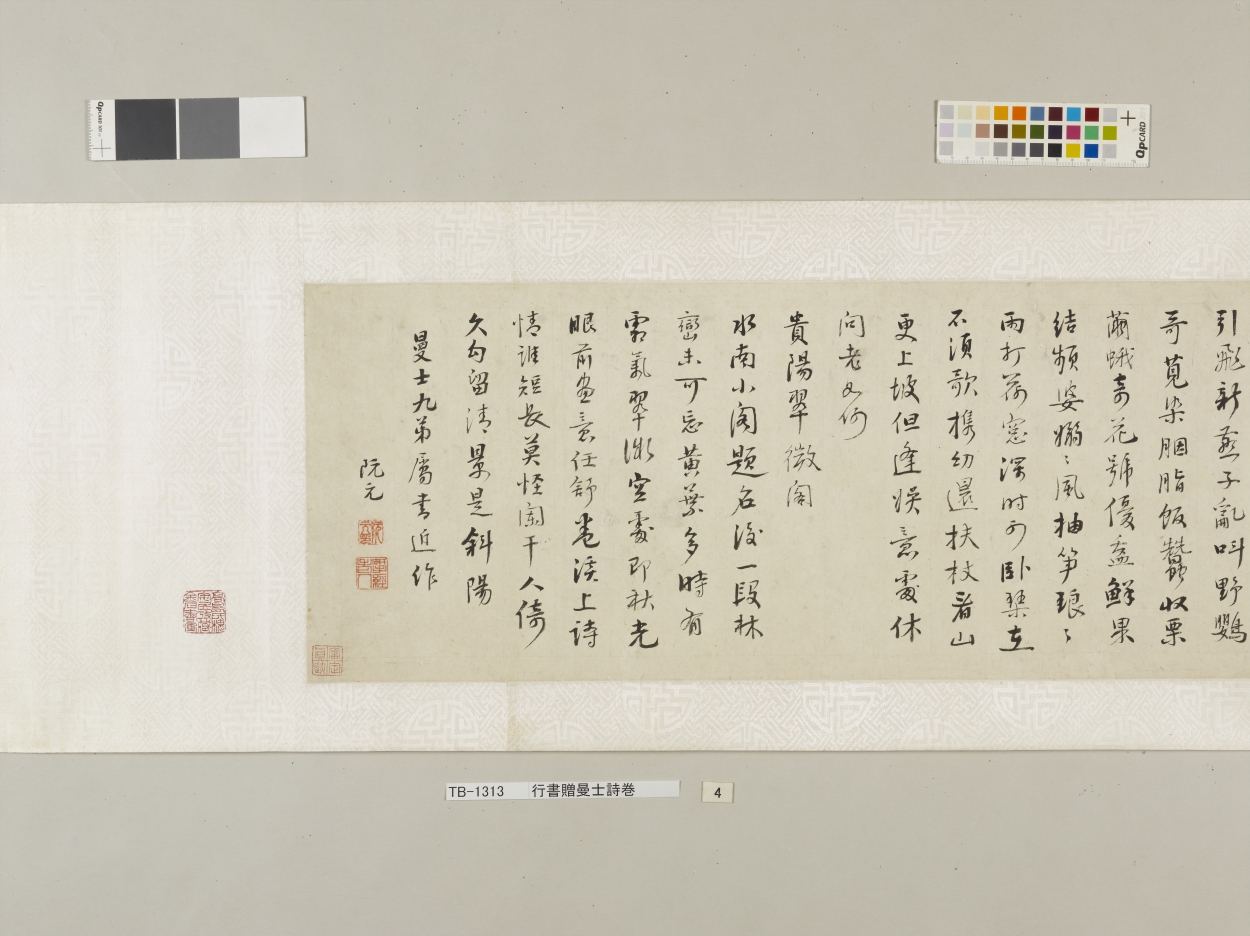 引飛新燕子亂叫野鸚
哥莧染胭脂飯蠶收栗
繭蛾奇花號優盋鮮果
結頻婆嫋〻風抽笋琅〻
雨打荷窓深時可臥琹立
不須歌攜幼還扶杖看山
更上坡但逢娛意處休
問老如何
貴陽翠微閣
水南小閣題名後一段林
巒未可忘黃葉多時有
霜氣翠微空處即秋光
眼前畫意任舒卷溪上詩
情誰短長莫怪闌干人倚
久勾留清景是斜陽
曼士九弟屬書近作
阮元
TB-1313 行書贈曼士詩巻
4
QPCARD 101
QPCARD